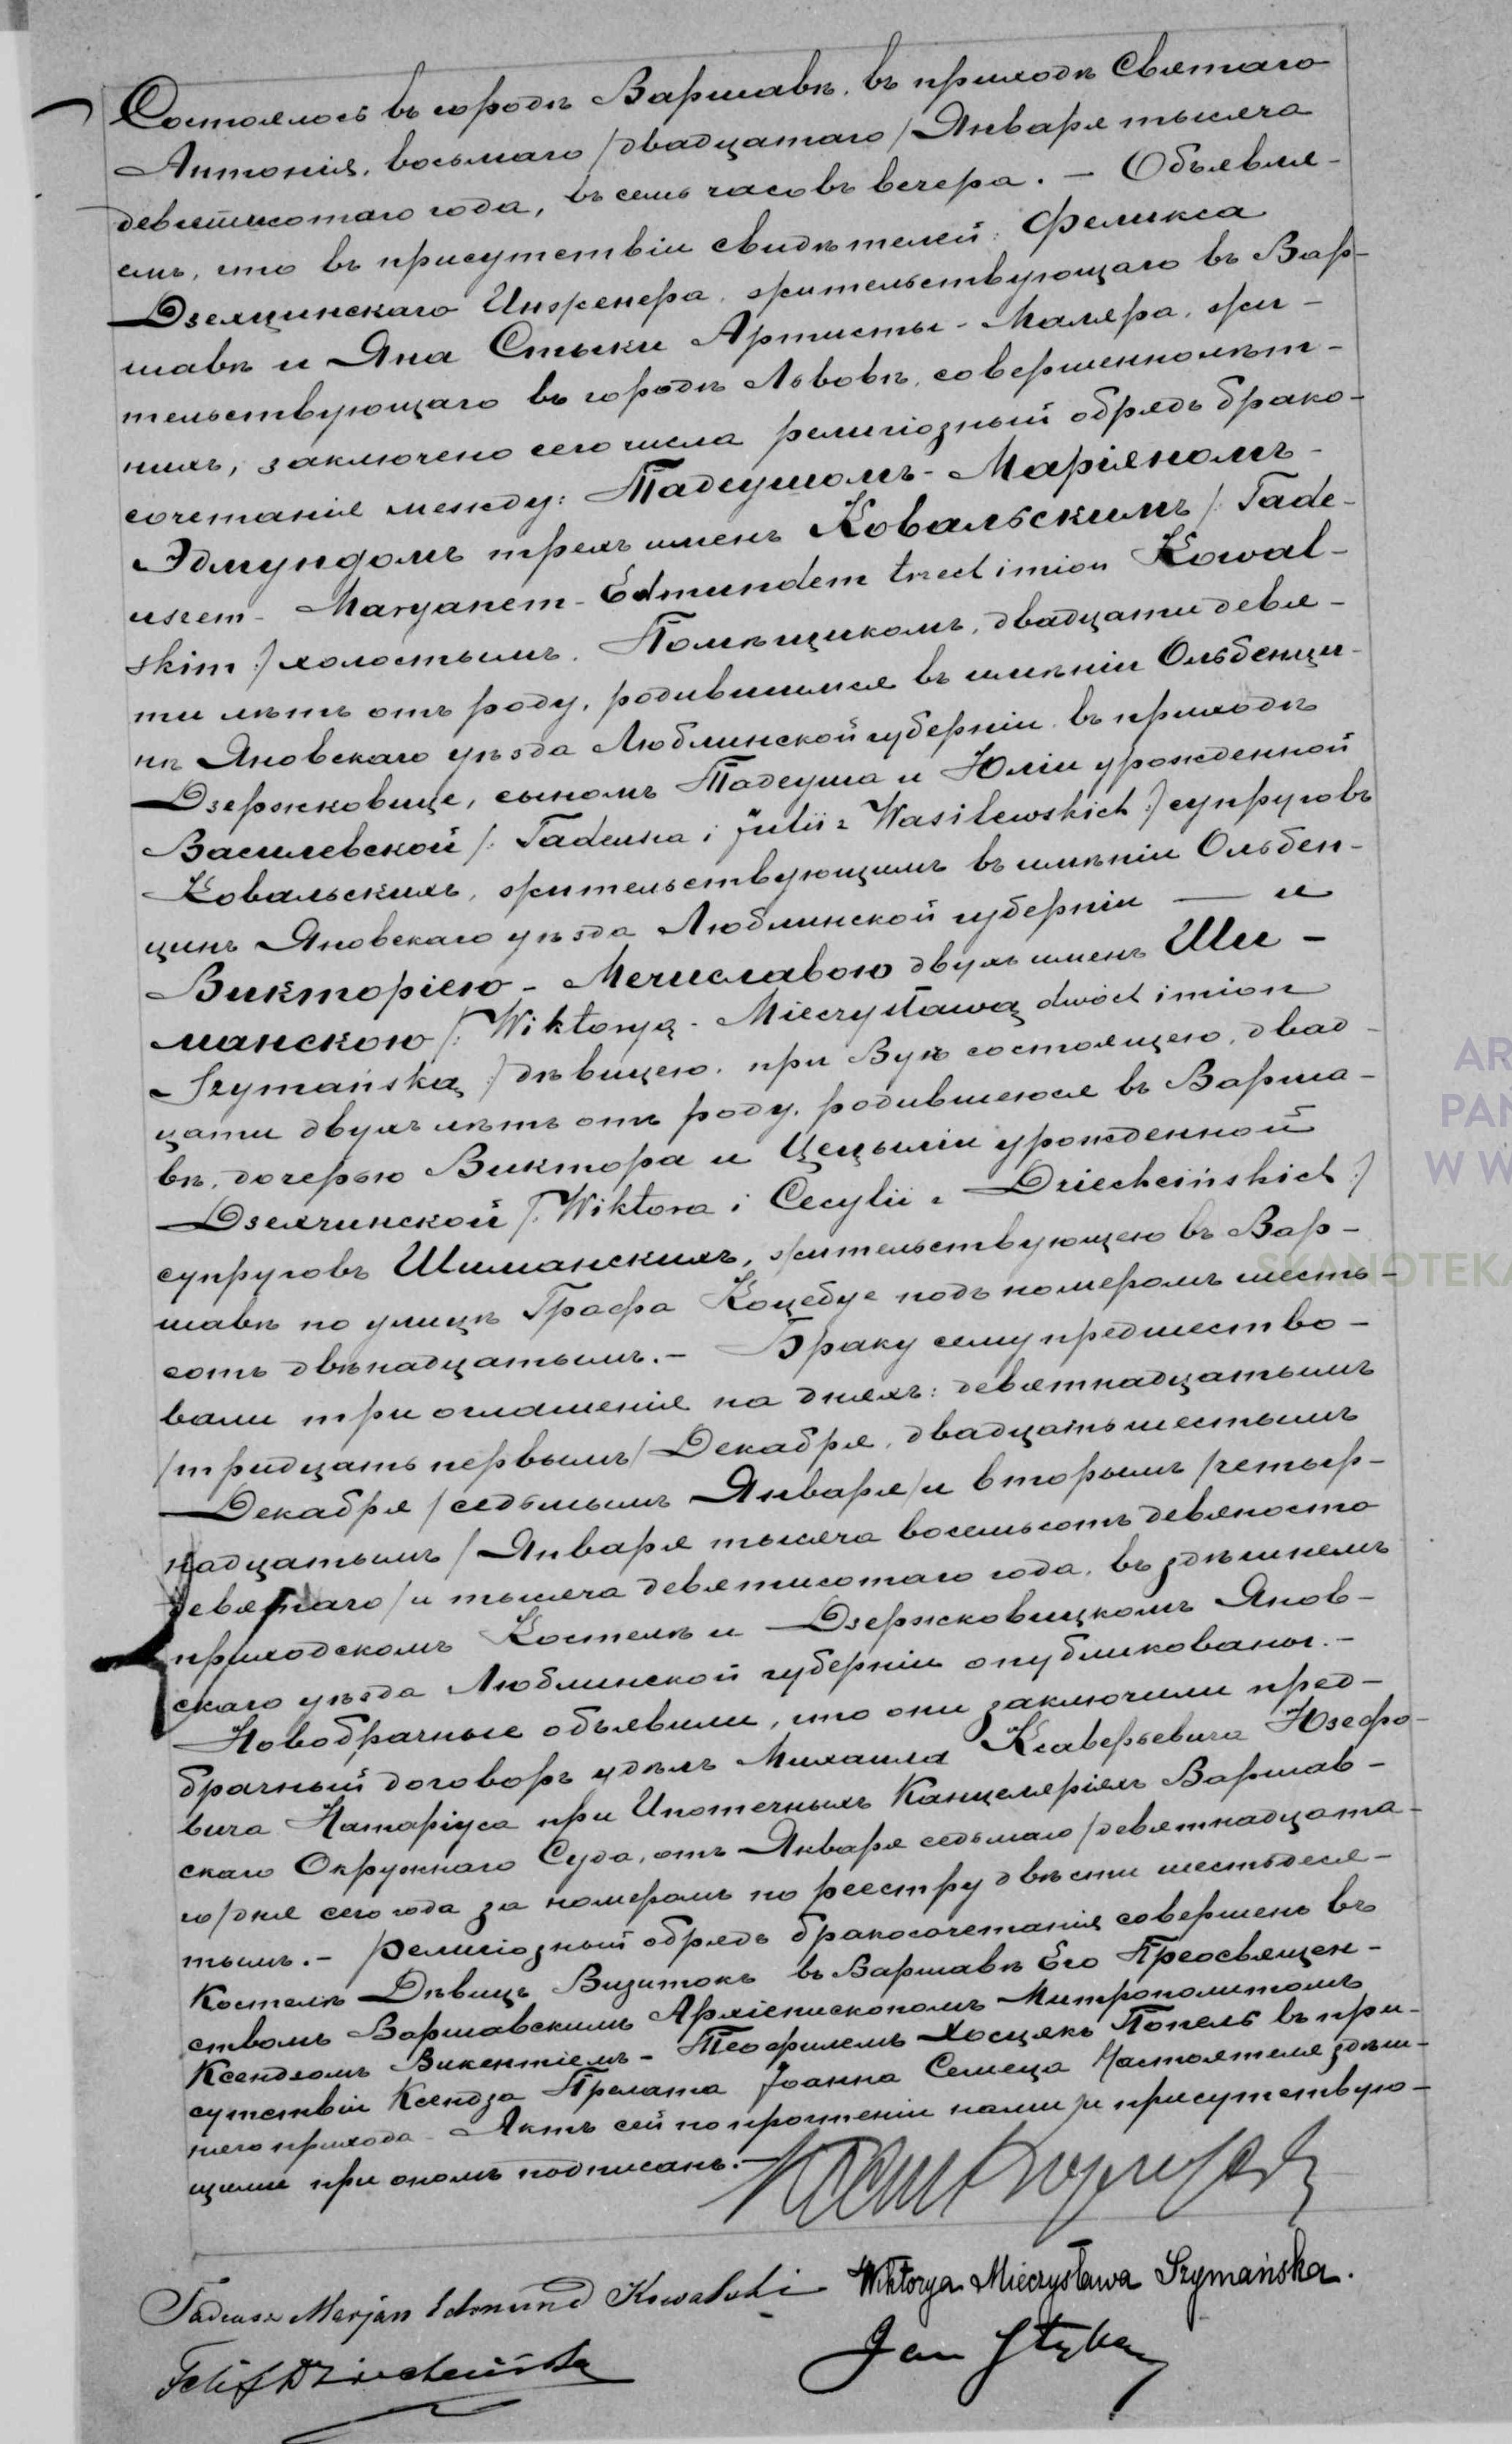 Состоялось въ городѣ Варшавѣ, въ приходѣ Святаго
Антонія, восьмаго /двадцатаго/ Января тысяча
девятисотаго года, въ семь часовъ вечера. – Объявля-
емъ, что въ присутствіи свидѣтелей: Феликса
Дзехцинскаго Инженера, жительствующаго въ Вар-
шавѣ и Яна Стыки Артисты-Маляра, жи-
тельствующаго въ городѣ Львовѣ, совершеннолѣт-
нихъ, заключено сего числа религіозный обрядъ брако-
сочетанія между: Тадеушомъ-Маріяномъ-
Эдмундомъ трехъ именъ Ковальскимъ /: Tade-
uszem-Maryanem-Edmundem trzech imion Kowal-
skim :/ холостымъ, Помѣщикомъ, двадцати девя-
ти лѣтъ отъ роду, родившимся въ имѣніи Ольбенци-
нѣ Яновскаго уѣзда Люблинской губерніи въ приходѣ
Дзержковице, сыномъ Тадеуша и Юліи урожденной
Василевской /: Tadeusza i Julii z Wasilewskich :/ супруговъ
Ковальскихъ, жительствующимъ въ имѣніи Ольбен-
цинъ Яновскаго уѣзда Люблинской губерніи — и
Викторіею-Мечиславою двухъ именъ Ши-
манскою /: Wiktoryą-Mieczysławą dwóch imion
Szymańską :/ дѣвицею, при Вуѣ состоящею, двад-
цати двухъ лѣтъ отъ роду, родившеюся въ Варша-
вѣ, дочерью Виктора и Цецыліи урожденной
Дзехчинской /: Wiktora i Cecylii z Dziechcińskich :/
супруговъ Шиманскихъ, жительствующею въ Вар-
шавѣ по улицѣ Графа Коцебуе подъ номеромъ шесть-
сотъ двѣнадцатымъ. – Браку сему предшество-
вали три оглашенія на дняхъ: девятнадцатымъ
/тридцать первымъ/ Декабря, двадцать шестымъ
Декабря /седьмымъ Января/ и вторымъ /четыр-
надцатымъ/ Января тысяча восемьсотъ девяносто
девятаго /и тысяча девятисотаго года, въ здѣшнемъ
приходскомъ Костелѣ и Дзержковицкомъ Янов-
скаго уѣзда Люблинской губерніи опубликованы. –
Новобрачные объявили, что они заключили пред-
брачный договоръ у дѣлъ Михаила Ксаверьевича Юзефо-
вича Нотаріуса при Ипотечныхъ Канцеляріяхъ Варшав-
скаго Окружнаго Суда, отъ Января седьмаго /девятнадцата-
го/ дня сего года за номеромъ по реестру двѣсти шестьдеся-
тымъ. – Религіозный обрядъ бракосочетанія совершенъ въ
Костелѣ Дѣвицъ Визитокъ въ Варшавѣ Его Преосвящен-
ствомъ Варшавскимъ Архіепископомъ Митрополитомъ
Ксендзомъ Викентіемъ-Теофилемъ Хосцякъ Попель въ при-
сутствіи Ксендза Прелата Іоанна Семеца Настоятеля здѣш-
него прихода – Актъ сей по прочтеніи нами и присутствую-
щими при ономъ подписанъ. –
Tadeusz Marjan Edmund Kowalski Wiktorya Mieczysława Szymańska.
Felix Dziechciński Jan Styka